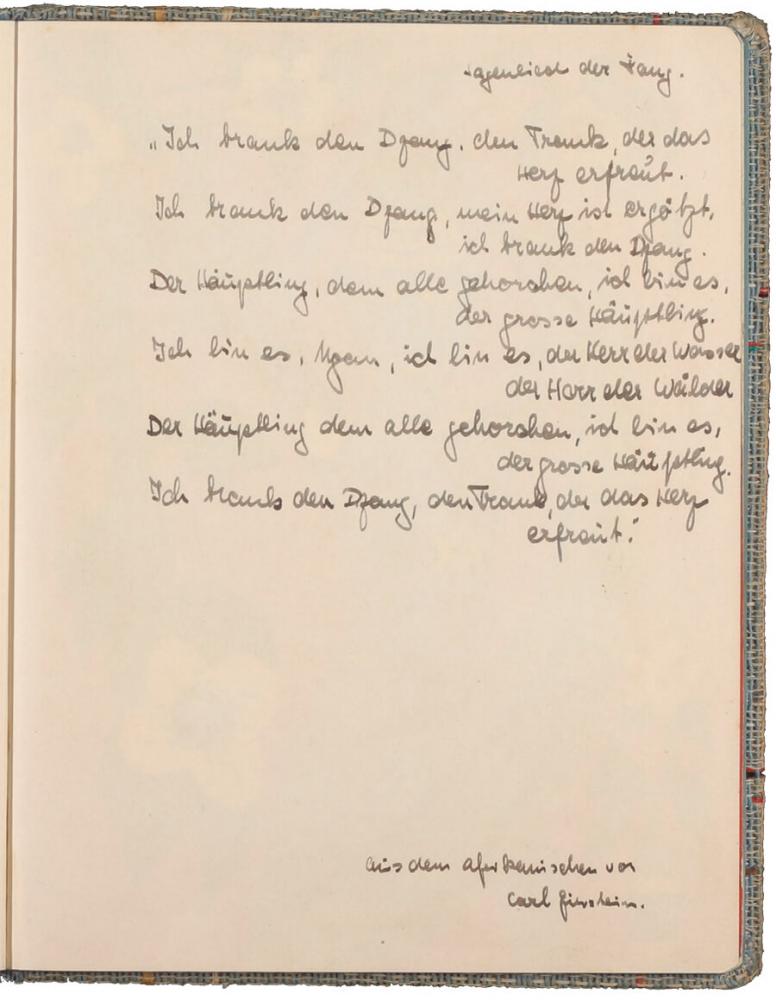 Sagenlied der Fang.
„Ich trank den Dzang, den Trank, der das
Herz erfreut.
Ich trank den Dzang, mein Herz ist ergötzt,
ich trank den Dzang.
Der Häuptling, dem alle gehorchen, ich bin es,
der grosse Häuptling.
Ich bin es, Ngan, ich bin es, der Herr der Wasser
der Herr der Wälder
Der Häuptling dem alle gehorchen, ich bin es,
der grosse Häuptling.
Ich trank den Dzang, den Trank, der das Herz
erfreut."
aus dem afrikanischen von
Carl Einstein.